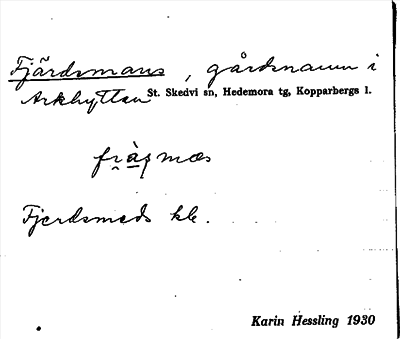 Fjärdsmans, gårdsnamn i
Arkhyttan St. Skedvi sn, Hedemora tg, Kopparbergs l.
Fjerdsmeds kb.
Karin Hessling 1930